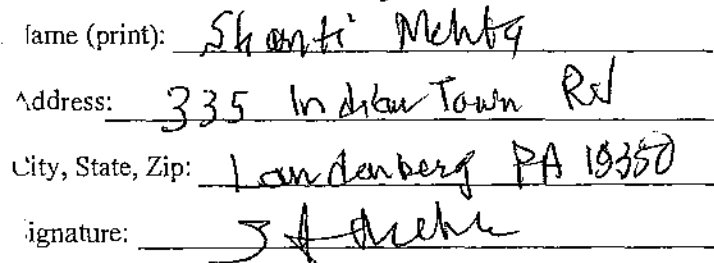 ame (print): Shanti Mehta
Address: 335 Indian Town Rd
City, State, Zip: Landenberg PA 19350
ignature: